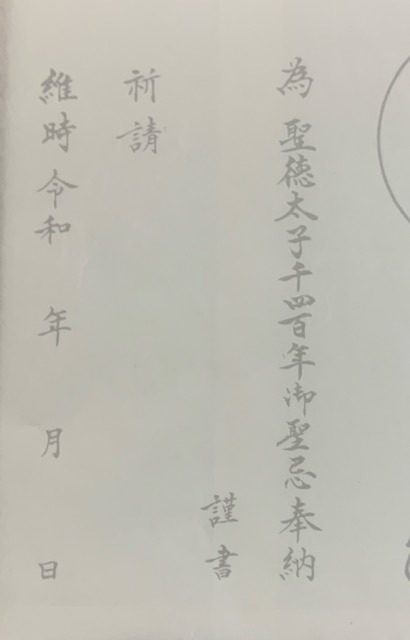 為 聖徳太子千四百年御聖忌奉納
謹書
祈請
維時令和 年 月 日